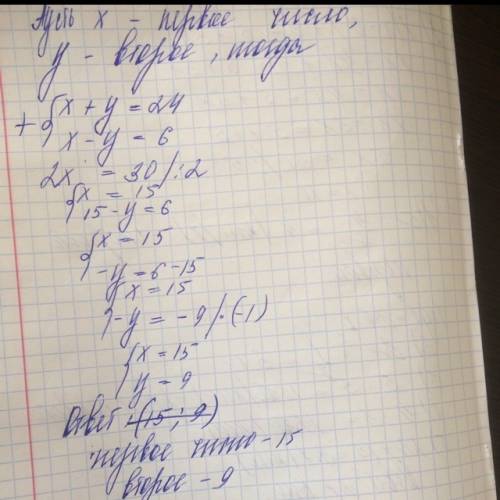 Пусть x - первое число,
y - второе, тогда
+ { x + y = 24
x - y = 6
2x = 30 / : 2
{ x = 15
15 - y = 6
{ x = 15
-y = 6 - 15
{ x = 15
-y = -9 / · (-1)
{ x = 15
y = 9
Ответ: (15; 9)
первое число - 15
второе - 9